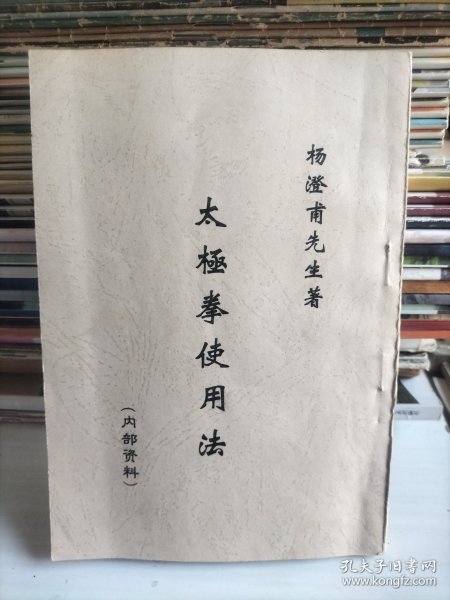 杨澄甫先生著
太極拳使用法
（内部资料）
孔夫子旧书网
www.kongfz.com